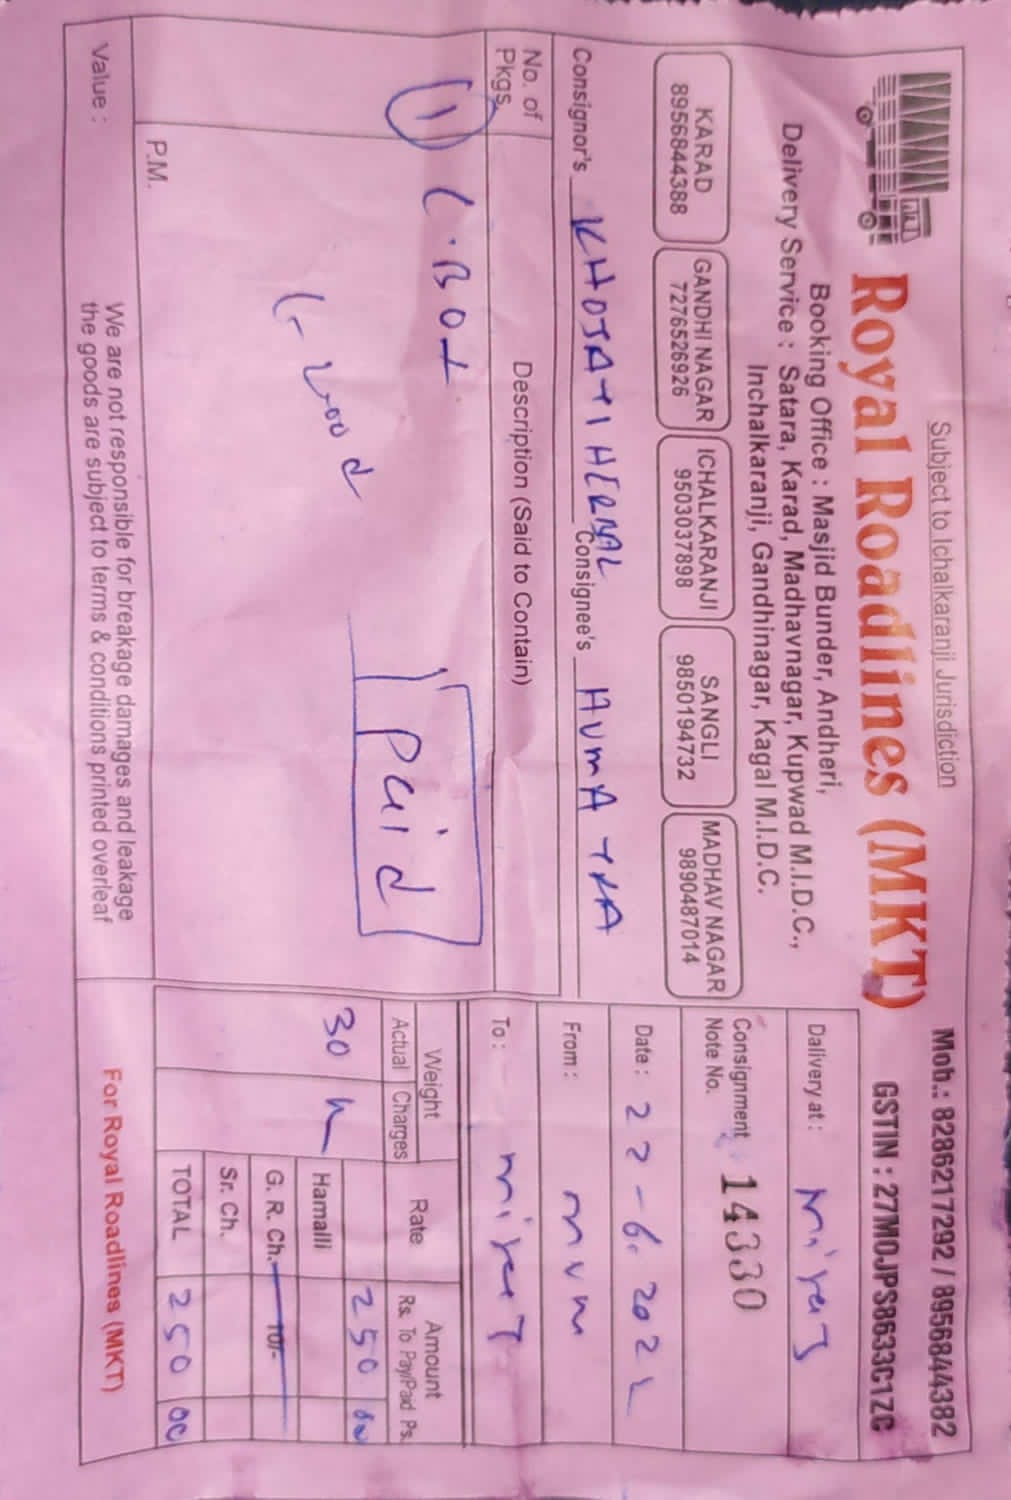 Subject to Ichalkaranji Jurisdiction
Mob.: 8286217292 / 8956844382
Royal Roadlines (MKT)
GSTIN : 27MOJPS8633C1ZG
Booking Office : Masjid Bunder, Andheri,
Delivery Service : Satara, Karad, Madhavnagar, Kupwad M.I.D.C.,
Inchalkaranji, Gandhinagar, Kagal M.I.D.C.
KARAD
8956844388
GANDHI NAGAR
7276526926
ICHALKARANJI
9503037898
SANGLI
9850194732
MADHAV NAGAR
9890487014
Dalivery at :
Consignment
Note No. 14330
Consignor's KHOJATI HERBAL Consignee's
Date : 22-6.2022
From : mum
To :
No. of
Pkgs.
Description (Said to Contain)
Weight
Actual Charges
Rate
Amount
Rs. To Pay/Paid Ps.
1
250 00
30
Hamalli
G. R. Ch. 10/-
Sr. Ch.
TOTAL 250 00
Good
Paid
P.M.
Value :
We are not responsible for breakage damages and leakage
the goods are subject to terms & conditions printed overleaf
For Royal Roadlines (MKT)